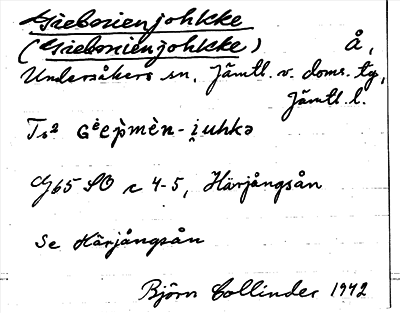 Giebnienjohkke
(Giebnienjohkke) Å,
Undersåkers sn, Jämtl. v. doms. tg,
Jämtl. l.
Ts² Gèepmèn-i̯uhkə
G65 SO c 4-5, Härjångsån
Se Härjångsån
Björn Collinder 1942